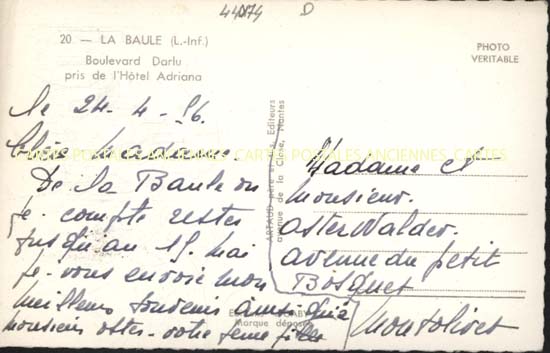 44074 D
20 — LA BAULE (L.-Inf.)
Boulevard Darlu
pris de l'Hôtel Adriana
PHOTO
VERITABLE
le 24-4-56.
Chère Madame
CARTES POSTALES ANCIENNES CARTES POSTALES ANCIENNES CARTES POSTALES ANCIENNES
De la Baule ou
je compte rester
jusqu'au 15 Mai
je vous envoie mon
meilleur souvenir ainsi qu'à
monsieur votre
ARTAUD père et Editeurs
avenue de la Nantes
Marque déposée
Madame et
Monsieur
avenue du petit
Bosquet
Montolivet